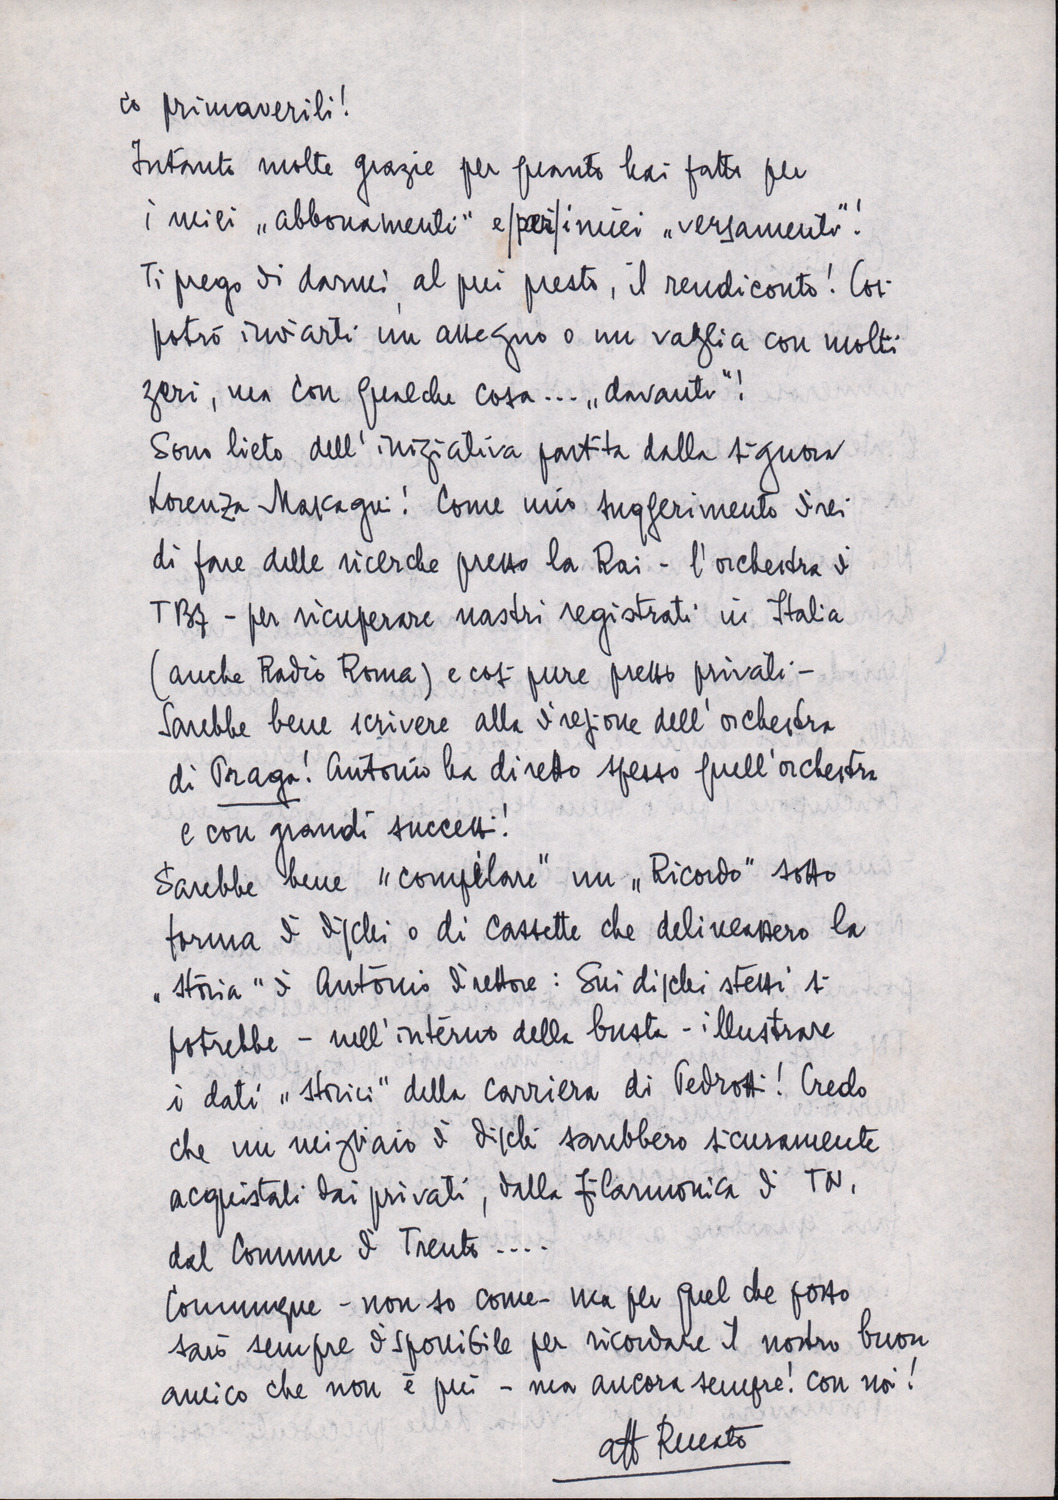 co primaverili!
Intanto molte grazie per quanto hai fatto per
i miei „abbonamenti" e/per/i miei „versamenti"!
Ti prego di darmi, al più presto, il rendiconto! Così
potrò inviarti un assegno o un vaglia con molti
zeri, ma con qualche cosa... „davanti"!
Sono lieto dell'iniziativa partita dalla signora
Lorenza! Come mio suggerimento direi
di fare delle ricerche presso la Rai - l'orchestra di
TBZ - per ricuperare nastri registrati in Italia
(anche Radio Roma) e così pure presso privati -
Sarebbe bene scrivere alla direzione dell'orchestra
di Praga! Antonio ha diretto spesso quell'orchestra
e con grandi successi!
Sarebbe bene "compilare" un „Ricordo" sotto
forma di dischi o di cassette che delineassero la
„storia" di Antonio direttore: Sui dischi stessi si
potrebbe - nell'interno della busta - illustrare
i dati „storici" della carriera di Pedrotti! Credo
che un migliaio di dischi sarebbero sicuramente
acquistati dai privati, dalla Filarmonica di TN,
dal Comune di Trento ....
Comunque - non so come - ma per quel che posso
sarò sempre disponibile per ricordare il nostro buon
amico che non è più - ma ancora sempre! con noi!
aff Renato